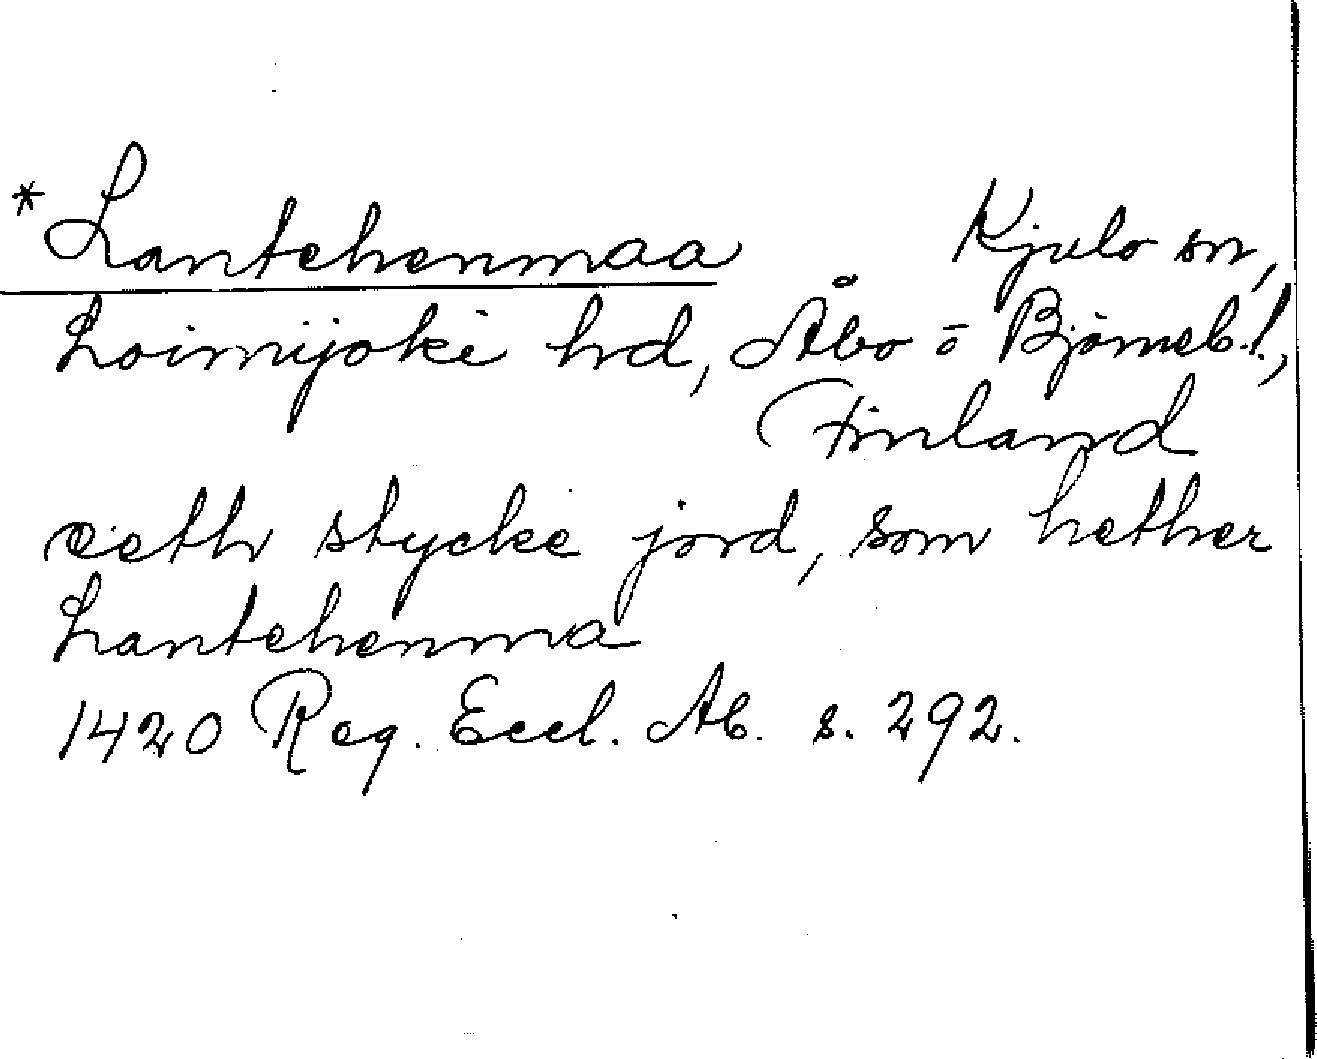 *Lantehenmaa Kjulo sn,
Loimijoki hd, Åbo o Björneb.l.,
Finland
eeth stycke jord, som hether
Lantehenma
1420 Reg. Eccl. Ab. s. 292.